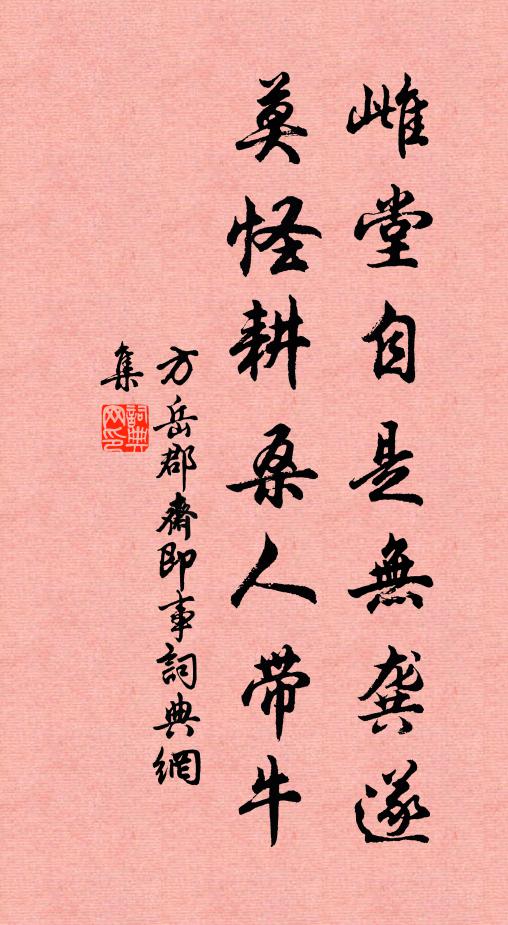 雌堂自是無龔遂
莫怪耕桑人带牛
方岳郡齋即事詞典網
集
詞典網印